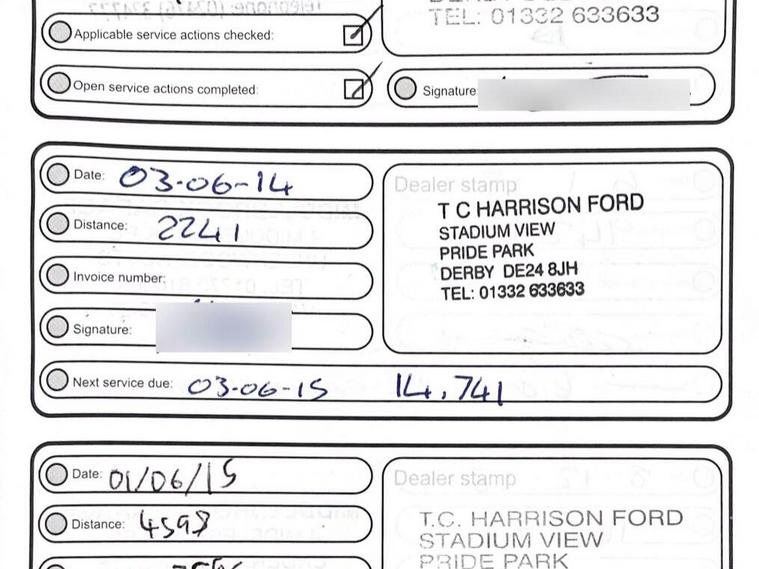 Applicable service actions checked:
TEL: 01332 633633
Open service actions completed:
Signature:
Date: 03-06-14
Distance: 2241
Invoice number:
Signature:
Next service due: 03-06-15 14,741
Dealer stamp
T C HARRISON FORD
STADIUM VIEW
PRIDE PARK
DERBY DE24 8JH
TEL: 01332 633633
Date: 01/06/15
Distance: 4598
Dealer stamp
T.C. HARRISON FORD
STADIUM VIEW
PRIDE PARK